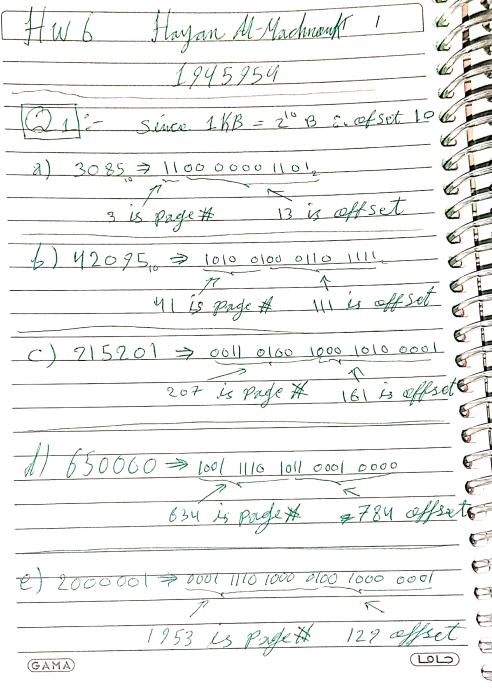 HW 6 Hayan Al-Machnouk 1
1945954
Q1:- since 1KB = 2¹⁰ B ∴ offset 10
a) 3085₁₀ ⇒ 1100 0000 1101₂
3 is page # 13 is offset
b) 42095₁₀ ⇒ 1010 0100 0110 1111
41 is page # 111 is offset
c) 215201 ⇒ 0011 0100 1000 1010 0001
207 is page # 161 is offset
d) 650000 ⇒ 1001 1110 1011 0001 0000
634 is page # 784 offset
e) 2000001 ⇒ 0001 1110 1000 0100 1000 0001
1953 is page # 129 offset
GAMA LOLO